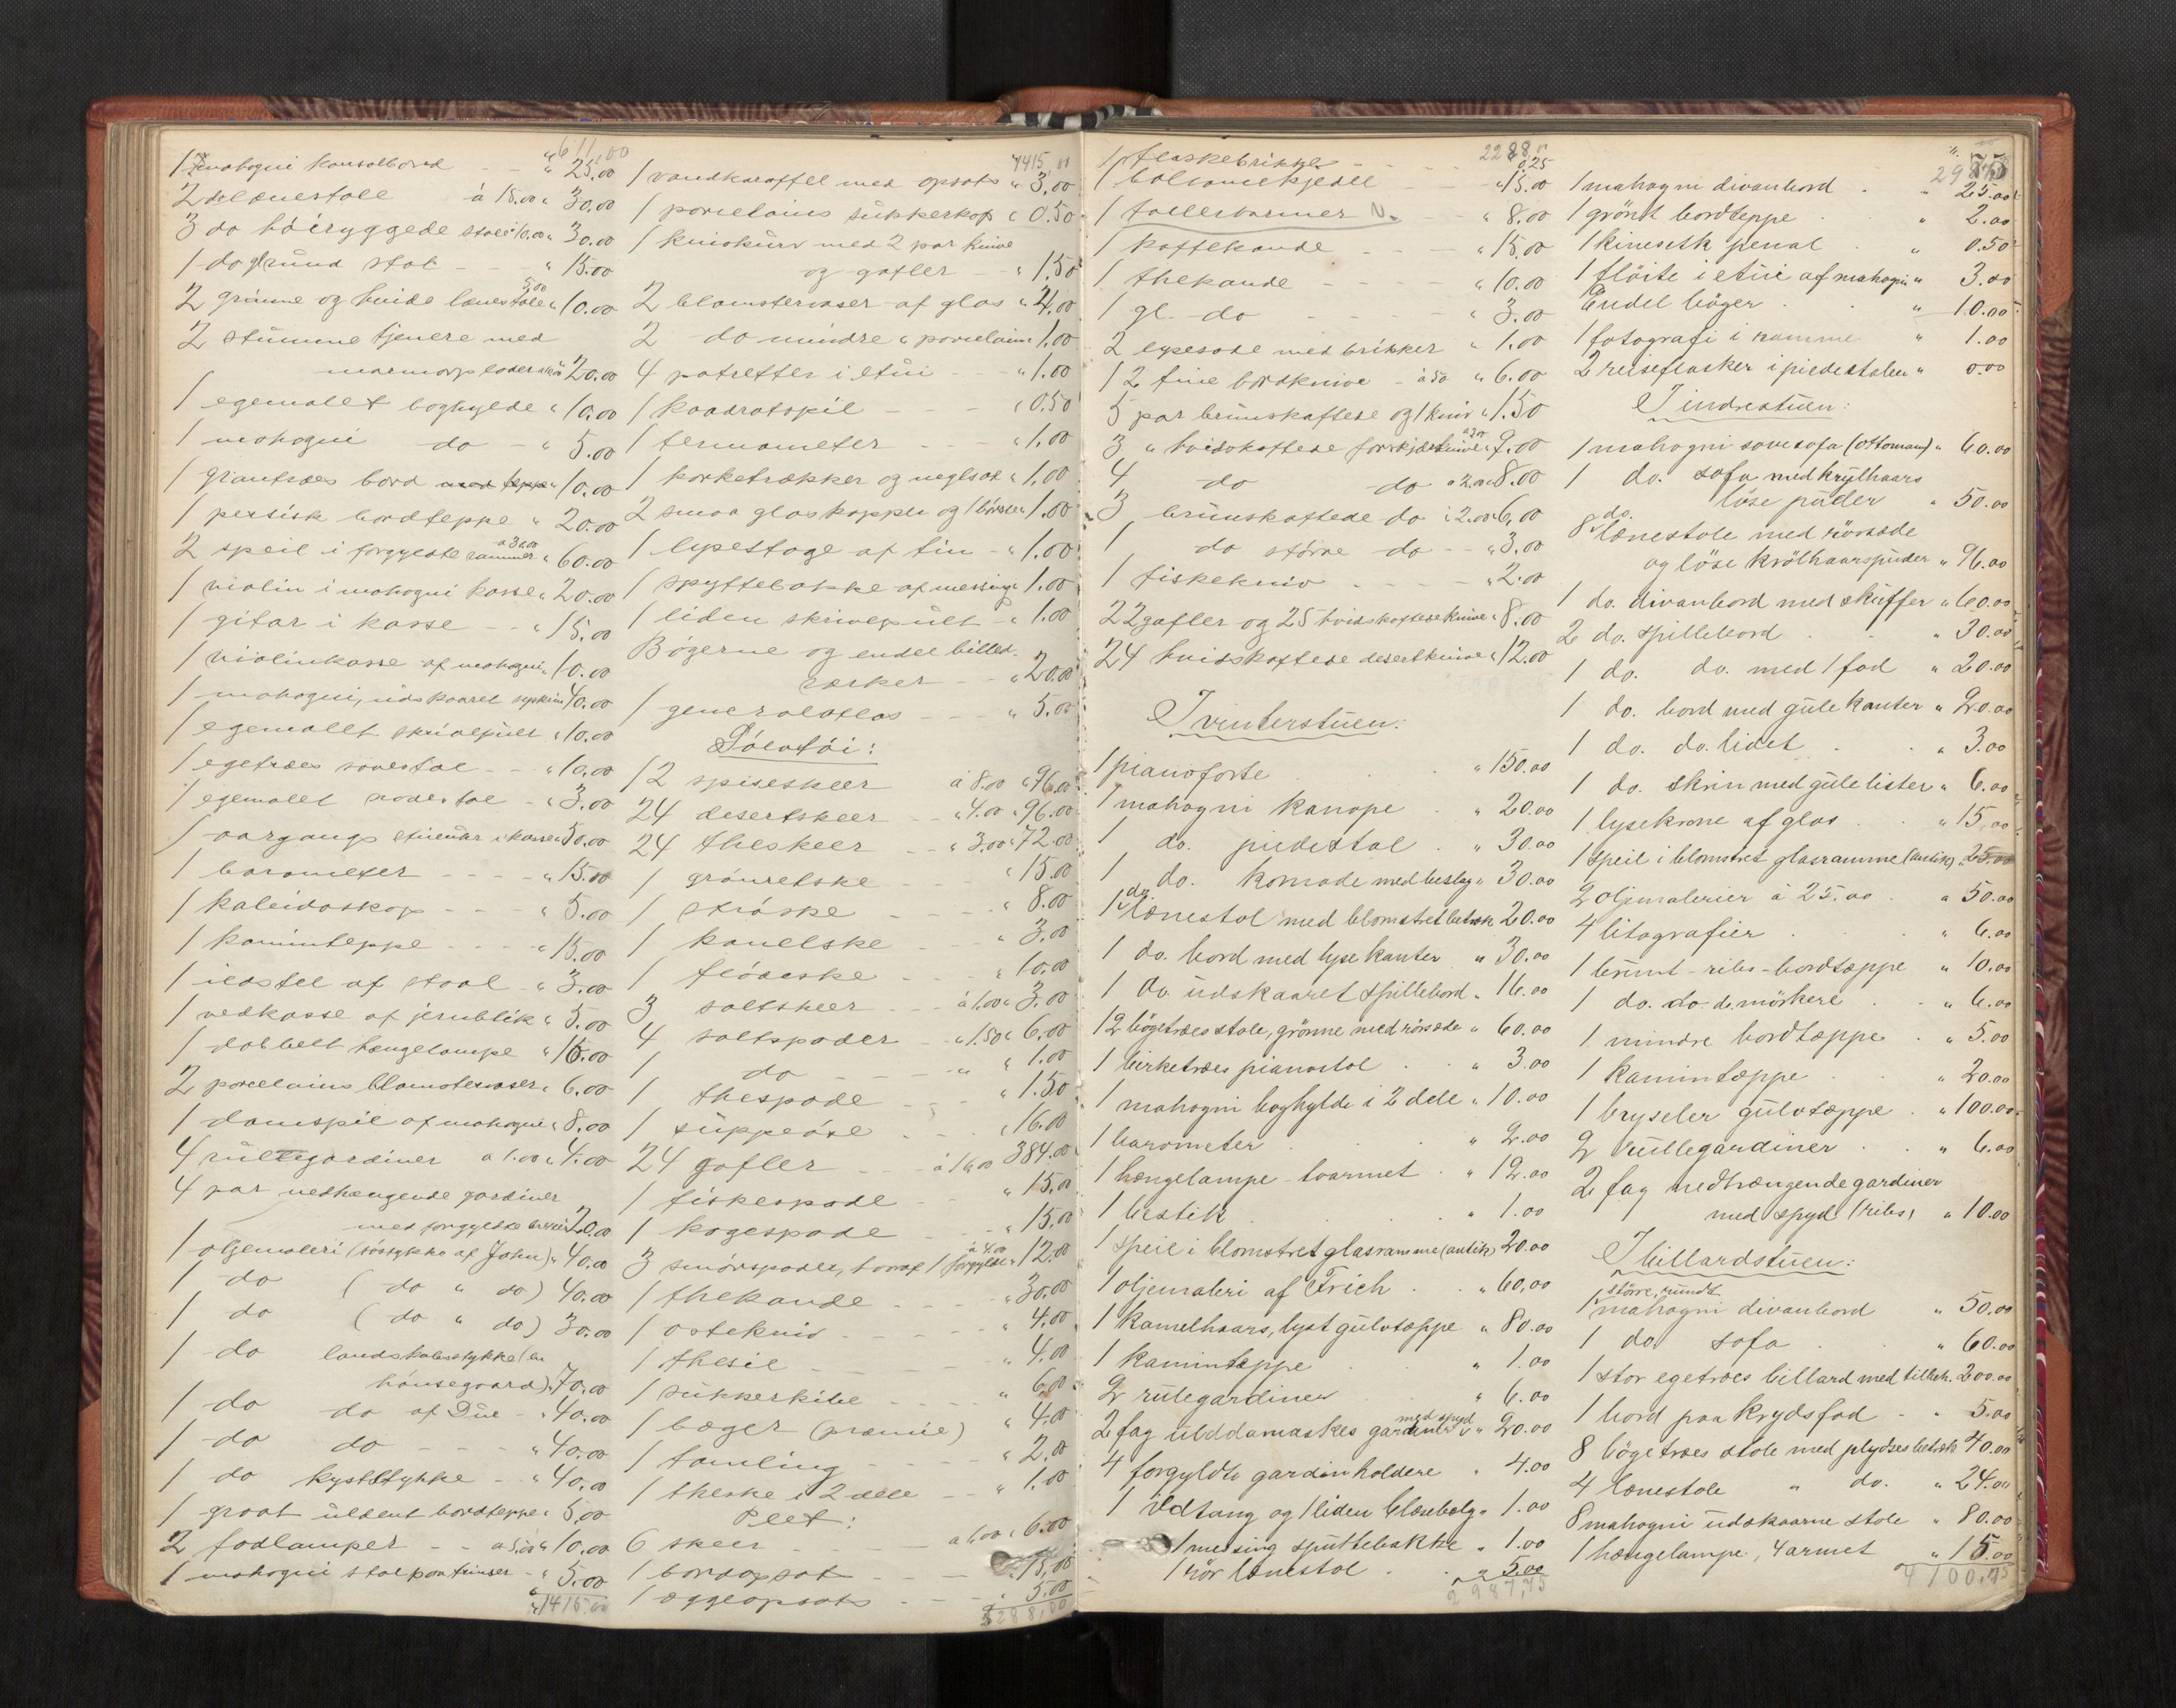 611,00
1 mahogni konsolbord " 25.00
2 do lænestole à 15.00 " 30.00
3 do høiryggede stole 10.00 " 30.00
1 do rund stol " 15.00
2 grønne og hvide lænestole 5.00 " 10.00
2 stumme tjenere med
marmorplader " 20.00
1 egemalet boghylde " 10.00
1 mahogni do " 5.00
1 grantræes bord " 10.00
1 persisk bordteppe " 20.00
2 speil i forgyldte rammer à 30.00 " 60.00
1 violin i mahogni kasse " 20.00
1 gitar i kasse " 15.00
1 violinkasse af mahogni " 10.00
1 mahogni, udskaaret 40.00
1 egemallet skrivepult " 10.00
1 egetræes sovestol " 10.00
1 egemalet stol " 3.00
1 aargangs i kasse 50.00
1 barometer " 15.00
1 kaleidoskop " 5.00
1 kaminteppe " 15.00
1 ildstel af staal " 3.00
1 vedkasse af jernblik " 5.00
1 dobbelt hængelampe " 16.00
2 porcelains blomstervaser " 6.00
1 damspil af mahogni " 8.00
4 rullegardiner à 1.00 " 4.00
4 par nedhængende gardiner
med forgyldte 20.00
1 oljemaleri (søstykke af John) " 40.00
1 do (do " do) 40.00
1 do (do " do) 30.00
1 do landskabsstykke (en
hønsegaard) " 70.00
1 do do af Due " 40.00
1 do do " 40.00
1 do kyststykke " 40.00
1 graat uldent bordteppe " 5.00
2 fodlamper à 5.00 " 10.00
1 mahogni stol paa " 5.00
1415.00
1415,00
1 vandkaraffel med opsats " 3.00
1 porcelains sukkerkop " 0.50
1 knivkurv med 2 par knive
og gafler " 1.50
2 blomstervaser af glas " 4.00
2 do mindre " porcelain " 1.00
4 potretter i etui " 1.00
1 kvadratspil " 0.50
1 termometer " 1.00
1 korketrækker og neglsax " 1.00
2 smaa glaskopper og 1 børste " 1.00
1 lysestage af tin " 1.00
1 spyttebakke af messing " 1.00
1 liden skrivepult " 1.00
Bøgerne og endel billed-
værker " 20.00
1 generalatlas " 5.00
Sølvtøi:
12 spiseskeer à 8.00 " 96.00
24 desertskeer " 4.00 " 96.00
24 theskeer " 3.00 " 72.00
1 grønretske " 15.00
1 strøske " 8.00
1 kanelske " 3.00
1 flødeske " 10.00
3 saltskeer à 1.00 " 3.00
4 saltspader " 1.50 " 6.00
1 do " 1.00
1 thespade " 1.50
1 suppeøse " 16.00
24 gafler à 16.00 384.00
1 fiskespade " 15.00
1 kagespade " 15.00
3 smørspader, hvoraf 1 forgyldt à 4.00 " 12.00
1 thekande " 30.00
1 osteknive " 4.00
1 thesil " 4.00
1 sukkerkibe " 6.00
1 bæger (præmie) " 4.00
1 tamling " 2.00
1 theske i 2 dele " 1.00
Plet:
6 skeer à 1.00 " 6.00
1 bordopsats 15.00
1 æggeopsats " 5.00
2288,00
2288,00
1 flaskebrikke 0.25
1 bolvandskjedel " 15.00
1 tallervarmer N. " 8.00
1 kaffekande " 15.00
1 thekande " 10.00
1 gl. do " 3.00
2 lysesaxe med brikker " 1.00
12 fine bordknive à 50 " 6.00
5 par brunskaftede og 1 kniv " 1.50
3 " hvidskaftede forskjærknive à 3.00 " 9.00
4 do do à 2.00 " 8.00
3 brunskaftede do à 2.00 " 6.00
1 do større do " 3.00
1 fiskekniv " 2.00
22 gafler og 25 hvidskaftede knive " 8.00
24 hvidskaftede desertknive " 12.00
I vinterstuen:
1 pianoforte " 150.00
1 mahogni kanape " 20.00
1 do. piedestal " 30.00
1 do. komode med beslag " 30.00
1 do. lænestol med blomstret betræk 20.00
1 do. bord med lyse kanter " 30.00
1 do. udskaaret spillebord " 16.00
12 bøgetræes stole, grønne med rørsæde " 60.00
1 birketræes pianostol " 3.00
1 mahogni boghylde i 2 dele " 10.00
1 barometer " 2.00
1 hængelampe - toarmet " 12.00
1 bestik " 1.00
1 speil i blomstret glasramme (antik) 20.00
1 oljemaleri af Frich " 60,00
1 kamelhaars, lyst gulvtæppe " 80.00
1 kamintæppe " 1.00
2 rulegardiner " 6.00
2 fag ulddamaskes gardiner med spyd " 20.00
4 forgyldte gardinholdere " 4.00
1 ildtang og 1 liden blæsebelg " 1.00
1 messing sputtebakke " 1.00
1 rør lænestol " 5.00
2987,75
2987,75
1 mahogni divanbord " 25.00
1 grønt bordteppe " 2.00
1 kinesisk penal " 0.50
1 fløite i etui af mahogni " 3.00
Endel bøger " 10.00
1 fotografi i ramme " 1.00
2 reiseflasker i piedestalen " 0.00
I indrestuen:
1 mahogni sovesofa (ottoman) " 60.00
1 do. sofa med krølhaars
løse puder " 50.00
8 do. lænestole med rørsæde
og løse krølhaarspuder " 96.00
1 do. divanbord med skuffer " 60.00
2 do. spillebord " 30.00
1 do. do. med 1 fod " 20.00
1 do. bord med gule kanter " 20.00
1 do. do. lidet " 3.00
1 do. skrin med gule lister " 6.00
1 lysekrone af glas " 15,00
1 speil i blomstret glasramme (antik) 25.00
2 oljemalerier à 25.00 " 50.00
4 litografier " 6.00
1 brunt-ribs-bordtæppe " 10.00
1 do. do. do. mørkere " 6.00
1 mindre bordtæppe " 5.00
1 Kamintæppe " 20.00
1 bryseler gulvtæppe " 100.00
2 Rullegardiner " 6.00
2 fag nedhængende gardiner
med spyd (ribs) " 10.00
I billardstuen:
1 større, rundt mahogni divanbord " 50.00
1 do. sofa " 60.00
1 stor egetræes billard med tilbeh. 200.00
1 bord paa krydsfod " 5.00
8 bøgetræes stole med plydses betræk 40.00
4 lænestole " do. " 24.00
8 mahogni udskaarne stole " 80.00
1 hængelampe, 4 armet " 15.00
4100,75